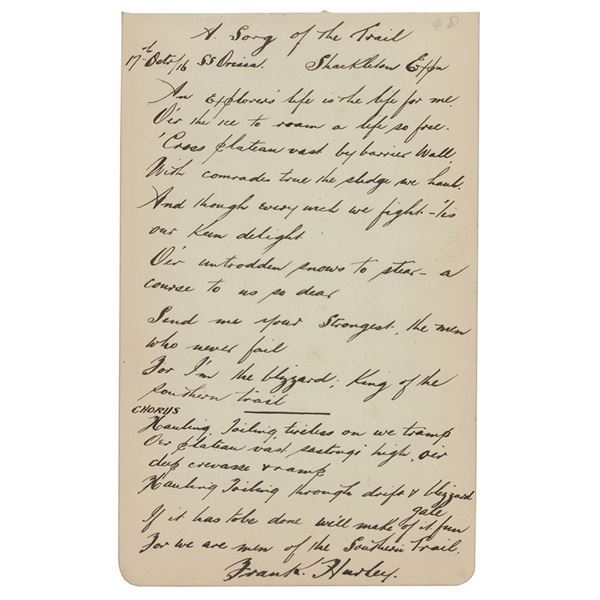 48
A Song of the Trail
17th Octr/16 SS Orissa. Shackleton Expn
An explorers life is the life for me.
O'er the ice to roam a life so free.
'Cross plateau vast by barrier Wall,
With comrades true the sledge we haul.
And though every inch we fight - 'tis
our keen delight
O'er untrodden snows to steer - a
course to us so dear
Send me your Strongest, the men
who never fail
For I'm the blizzard, King of the
southern trail
CHORUS
Hauling, Toiling, tireless on we tramp
O'er plateau vast sastrugi high, o'er
deep crevasse & ramp
Hauling Toiling through drift & blizzard
gale
If it has to be done we'll make of it fun
For we are men of the Southern Trail.
Frank Hurley.